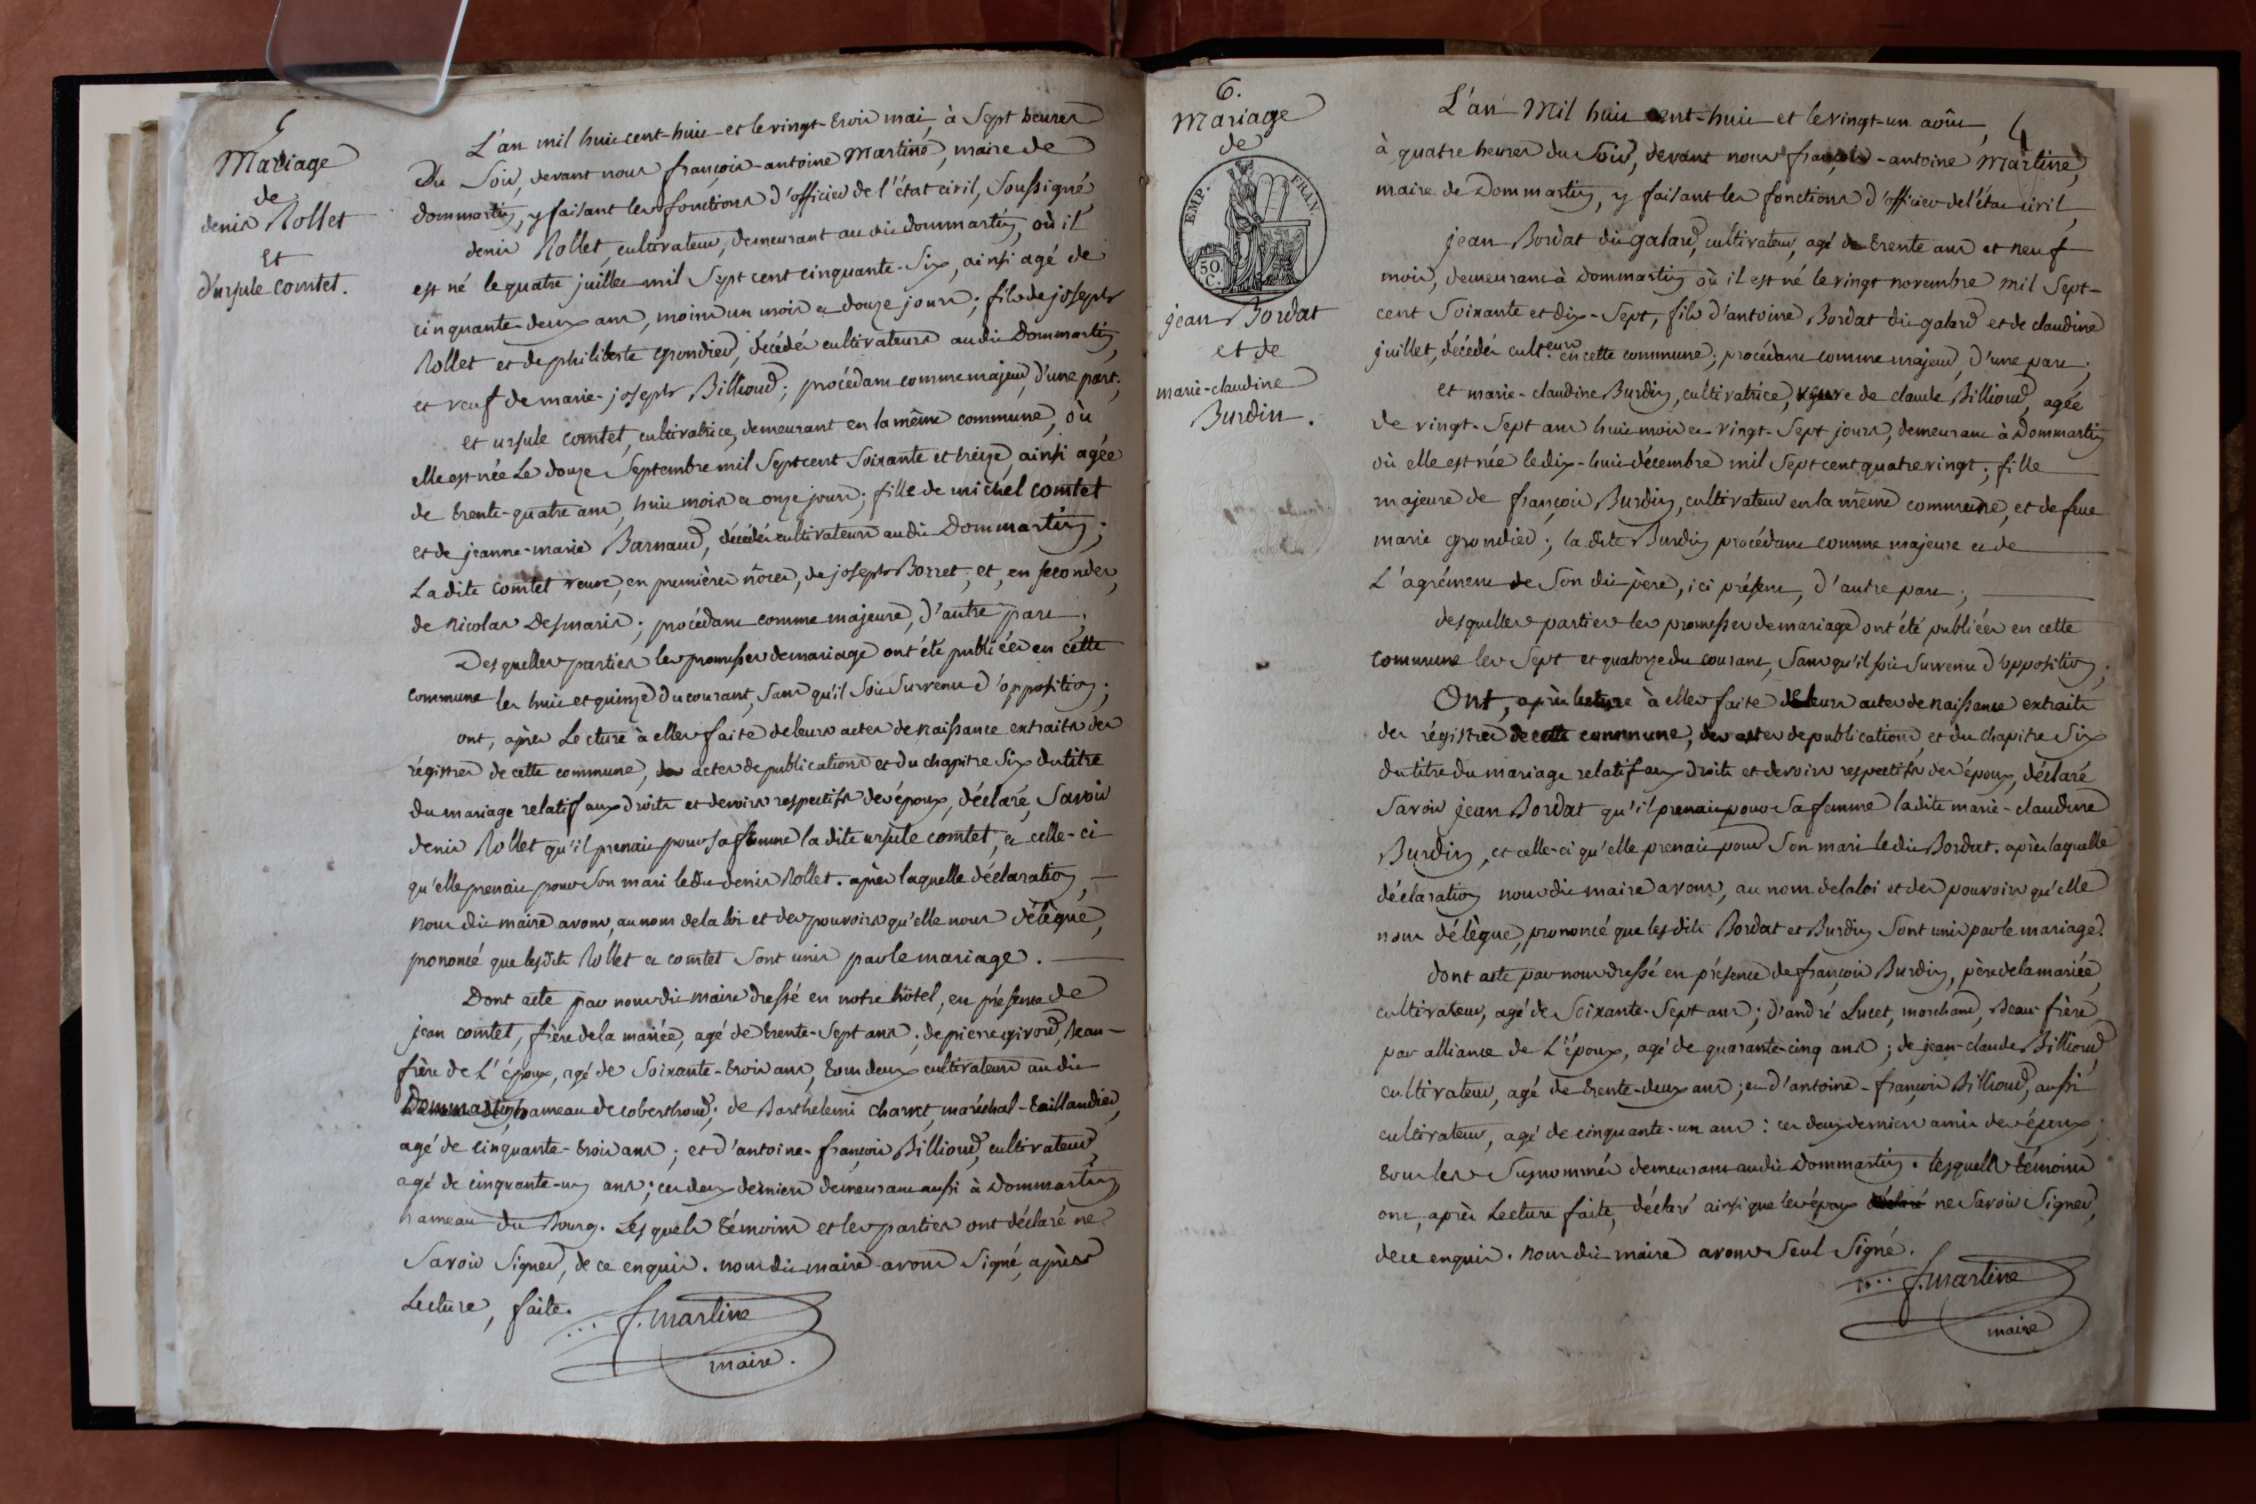 5
Mariage
de
denis Rollet
Et
d'ursule comtet.
L'an mil huit cent-huit et le vingt-trois mai, à Sept heures
Du Soir, devant nous françois-antoine Martine, maire de
dommartin, y faisant les fonctions d'officier de l'état civil, Soussigné,
denis Rollet, cultivateur, demeurant au dit dommartin, où il
est né le quatre juillet mil Sept cent cinquante-Six, ainsi agé de
cinquante-deux ans, moins un mois et douze jours; fils de joseph
Rollet et de philiberte grondier, décédés cultivateurs au dit Dommartin,
et veuf de marie-joseph Billioud; procédant comme majeur, d'une part;
et ursule comtet, cultivatrice, demeurant en la même commune, où
elle est née Le douze Septembre mil Sept cent Soixante et treize, ainsi agée
de trente-quatre ans, huit mois et onze jours; fille de michel comtet
et de jeanne-marie Barnaud, décédés cultivateurs au dit Dommartin;
La dite comtet veuve, en premières nôces, de joseph Borret; et, en secondes,
de nicolas Desmaris; procédant comme majeure, d'autre part;
Desquelles parties les promesses de mariage ont été publiées en cette
commune les huit et quinze du courant, Sans qu'il Soit Survenu d'opposition;
ont, après Lecture à elles faite de leurs actes de naissance extraits des
régistres de cette commune, des actes de publications et du chapitre Six du titre
du mariage relatif aux droits et devoirs respectifs des époux, déclaré, Savoir
denis Rollet qu'il prenait pour sa femme la dite ursule comtet, et celle-ci
qu'elle prenait pour Son mari le dit denis Rollet. après laquelle déclaration,
nous dit maire avons, au nom de la loi et des pouvoirs qu'elle nous délègue,
prononcé que lesdits Rollet et comtet Sont unis par le mariage.
Dont acte par nous dit maire dressé en notre hôtel, en présence de
jean comtet, frère de la mariée, agé de trente-Sept ans; de pierre girod, beau-
frère de L'époux, agé de Soixante-trois ans, tous deux cultivateurs au dit
Dommartin, hameau de coberthoud; de Barthelemi charvet, maréchal-taillandier,
agé de cinquante-trois ans; et d'antoine-françois Billioud, cultivateur,
agé de cinquante-un ans; ces deux derniers demeurant aussi à Dommartin,
hameau du Bourg. Lesquels témoins et les parties ont déclaré ne
Savoir Signer, de ce enquis. nous dit maire avons Signé, après
Lecture, faite.
f. martine
maire.
6.
Mariage
de
EMP. FRANÇ.
50 C.
jean Bordat
et de
marie-claudine
Burdin.
4
L'an Mil huit cent-huit et le vingt-un août,
à quatre heures du Soir, devant nous françois-antoine Martine,
maire de Dommartin, y faisant les fonctions d'officier de l'état civil,
jean Bordat dit galard, cultivateur, agé de trente ans et neuf
mois, demeurant à dommartin où il est né le vingt novembre mil Sept-
cent Soixante et dix-Sept, fils d'antoine Bordat dit galard et de claudine
juillet, décédés cult.eurs en cette commune; procédant comme majeur, d'une part;
et marie-claudine Burdin, cultivatrice, veuve de claude Billioud, agée
de vingt-Sept ans huit mois et vingt-Sept jours, demeurant à Dommartin
où elle est née le dix-huit décembre mil Sept cent quatre vingt; fille
majeure de françois Burdin, cultivateur en la même commune, et de feue
marie grondier; la dite Burdin procédant comme majeure et de
L'agrément de Son dit père, ici présent, d'autre part;
desquelles parties les promesses de mariage ont été publiées en cette
commune les Sept et quatorze du courant, Sans qu'il soit Survenu d'opposition;
Ont, après lecture à elles faite de leurs actes de naissance extraits
des régistres de cette commune, des actes de publications et du chapitre Six
du titre du mariage relatif aux droits et devoirs respectifs des époux, déclaré
Savoir jean Bordat qu'il prenait pour Sa femme la dite marie-claudine
Burdin, et celle-ci qu'elle prenait pour Son mari le dit Bordat. après laquelle
déclaration nous dit maire avons, au nom de la loi et des pouvoirs qu'elle
nous délègue, prononcé que lesdits Bordat et Burdin Sont unis par le mariage.
dont acte par nous dressé en présence de françois Burdin, père de la mariée,
cultivateur, agé de Soixante-Sept ans; d'andré Lucet, marchand, beau-frère
par alliance de L'époux, agé de quarante-cinq ans; de jean-claude Billioud
cultivateur, agé de trente-deux ans; et d'antoine-françois Billioud, aussi
cultivateur, agé de cinquante-un ans: ces deux derniers amis des époux;
tous les Susnommés demeurant au dit Dommartin. lesquels témoins
ont, après Lecture faite, déclaré ainsi que les époux déclaré ne Savoir Signer,
de ce enquis. nous dit maire avons Seul Signé.
f. martine
maire